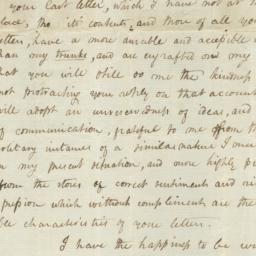 your last letter, which I have not at
place, tho' its contents, and those of all you
letters, have a more durable and accessible
than my trunks, and are engrafted on my
that you will still do me the kindness
not protracting your reply on that account
will adopt an unreservedness of ideas, and
of communication, grateful to me from th
solitary instances of a similar nature I meet
in my present situation, and more highly pr
from the stores of correct sentiments and ni
expression which without compliment are the
ble characteristics of your letters.
I have the happiness to be wi